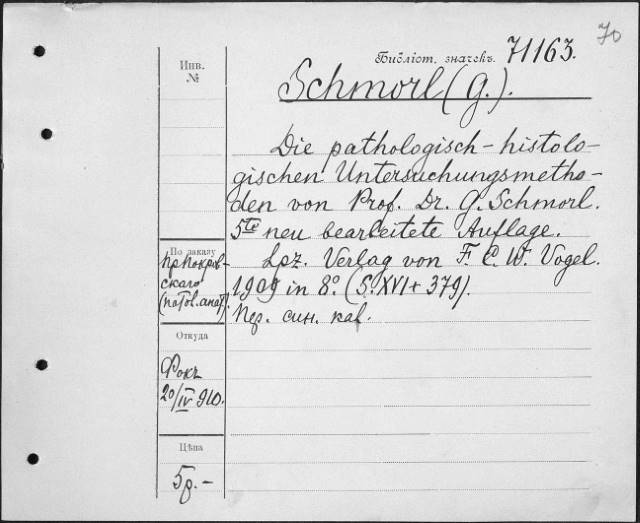 70
Библіот. значекъ. 71163.
Инв.
№
Schmorl (G.).
Die pathologisch-histolo-
gischen Untersuchungsmetho-
den von Prof. Dr. G. Schmorl.
5te neu bearbeitete Auflage.
Lpz. Verlag von F. C. W. Vogel.
1909 in 8º. (S. XVI + 379).
Пер. син. каl.
По заказу
пр. Покров-
скаго
(патол. анат).
Откуда
Фокъ
20/IV 910.
Цѣна
5р. -